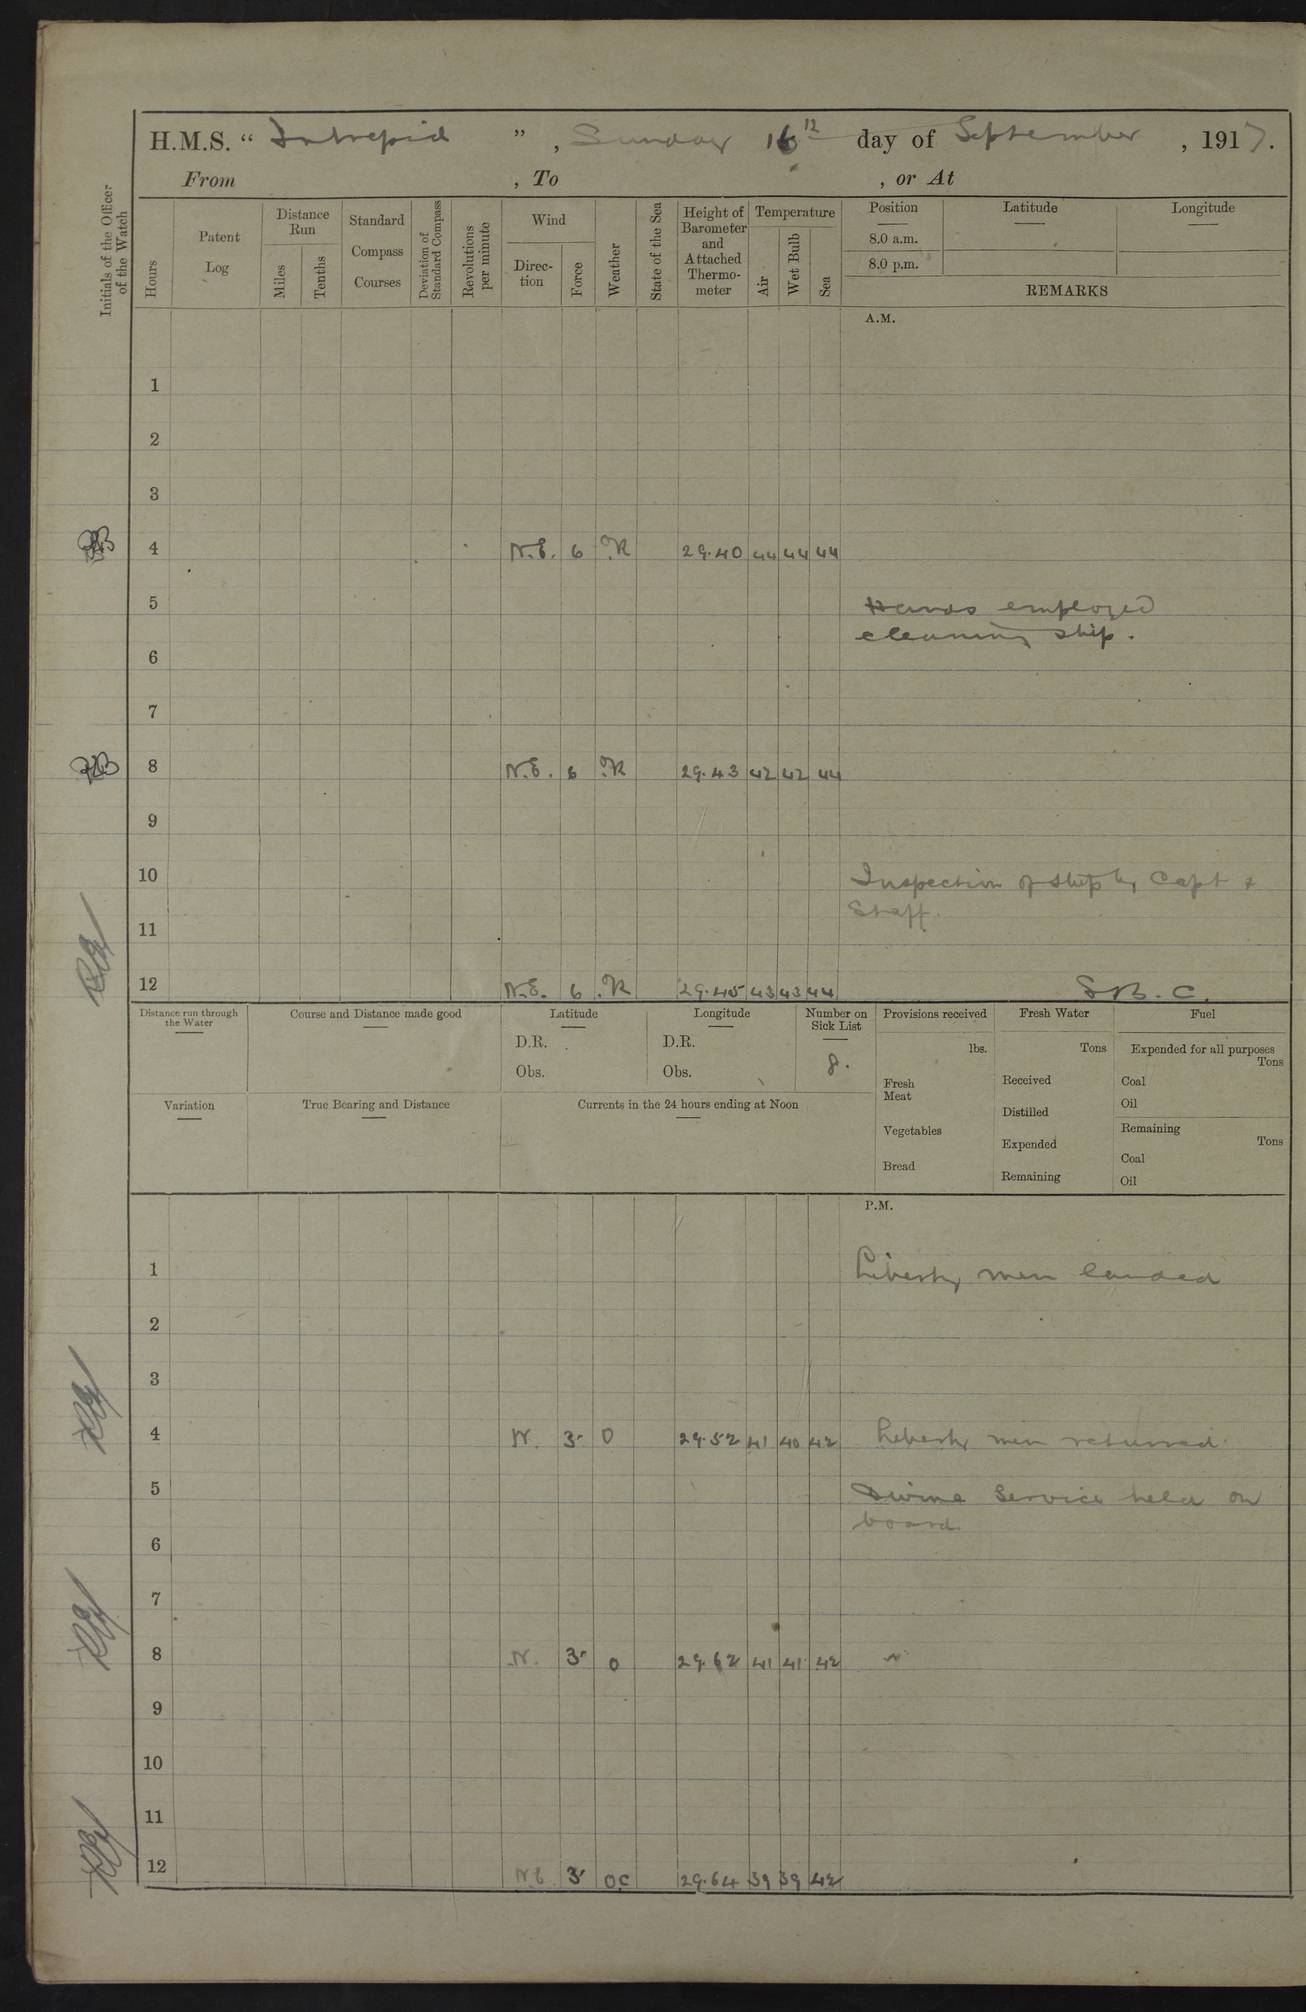 H.M.S. “ Intrepid ”, Sunday 16th day of September, 1917.
From , To , or At
Initials of the Officer of the Watch
Hours
Patent Log
Distance Run
Miles
Tenths
Standard Compass Courses
Deviation of Standard Compass
Revolutions per minute
Wind
Direction
Force
Weather
State of the Sea
Height of Barometer and Attached Thermometer
Temperature
Air
Wet Bulb
Sea
Position
8.0 a.m.
8.0 p.m.
Latitude
Longitude
REMARKS
A.M.
1
2
3
4 N.E. 6 R 29.40 44 44 44
5 Hands employed
cleaning ship.
6
7
8 N.E. 6 R 29.43 42 42 44
9
10 Inspection of ship by Capt &
Staff.
11
12 N.E. 6 R 29.45 43 43 44
Distance run through the Water
Course and Distance made good
Latitude
D.R.
Obs.
Longitude
D.R.
Obs.
Number on Sick List
8.
Provisions received
lbs.
Fresh Meat
Vegetables
Bread
Fresh Water
Tons
Received
Distilled
Expended
Remaining
Fuel
Expended for all purposes
Tons
Coal
Oil
Remaining
Tons
Coal
Oil
Variation
True Bearing and Distance
Currents in the 24 hours ending at Noon
P.M.
1 Liberty men landed
2
3
4 N. 3 O 29.52 41 40 42 Liberty men returned.
5 Divine Service held on
board.
6
7
8 N. 3 O 29.62 41 41 42
9
10
11
12 N.E. 3 OC 29.64 39 39 42